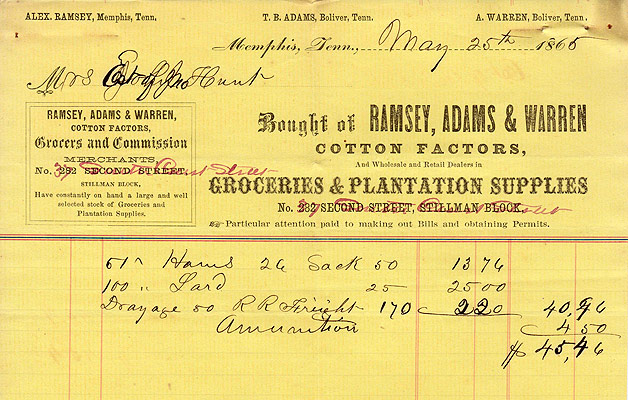 ALEX. RAMSEY, Memphis, Tenn. T. B. ADAMS, Boliver, Tenn. A. WARREN, Boliver, Tenn.
Memphis, Tenn., May 25th 1866
Mrs Hunt
RAMSEY, ADAMS & WARREN,
COTTON FACTORS,
Grocers and Commission
MERCHANTS
No. 232 SECOND STREET,
STILLMAN BLOCK,
Have constantly on hand a large and well
selected stock of Groceries and
Plantation Supplies.
Bought of RAMSEY, ADAMS & WARREN
COTTON FACTORS,
And Wholesale and Retail Dealers in
GROCERIES & PLANTATION SUPPLIES
No. 232 SECOND STREET, STILLMAN BLOCK.
Particular attention paid to making out Bills and obtaining Permits.
51 Hams 26 Sack 50 13 76
100 " Lard 25 25 00
Drayage 50 R R Freight 170 2 20 40,96
Amunition 4 50
$ 45,46